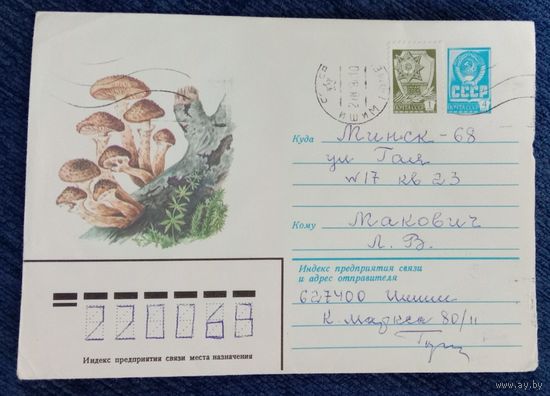 ПОЧТА СССР 1
СССР
ПОЧТА 4
ИШИМ
Куда Минск-68
ул Гая
N 17 кв 23
Кому Макович
Л. В.
Индекс предприятия связи
и адрес отправителя
627400 Ишим
К Маркса 80/11
220068
Индекс предприятия связи места назначения
www.ay.by